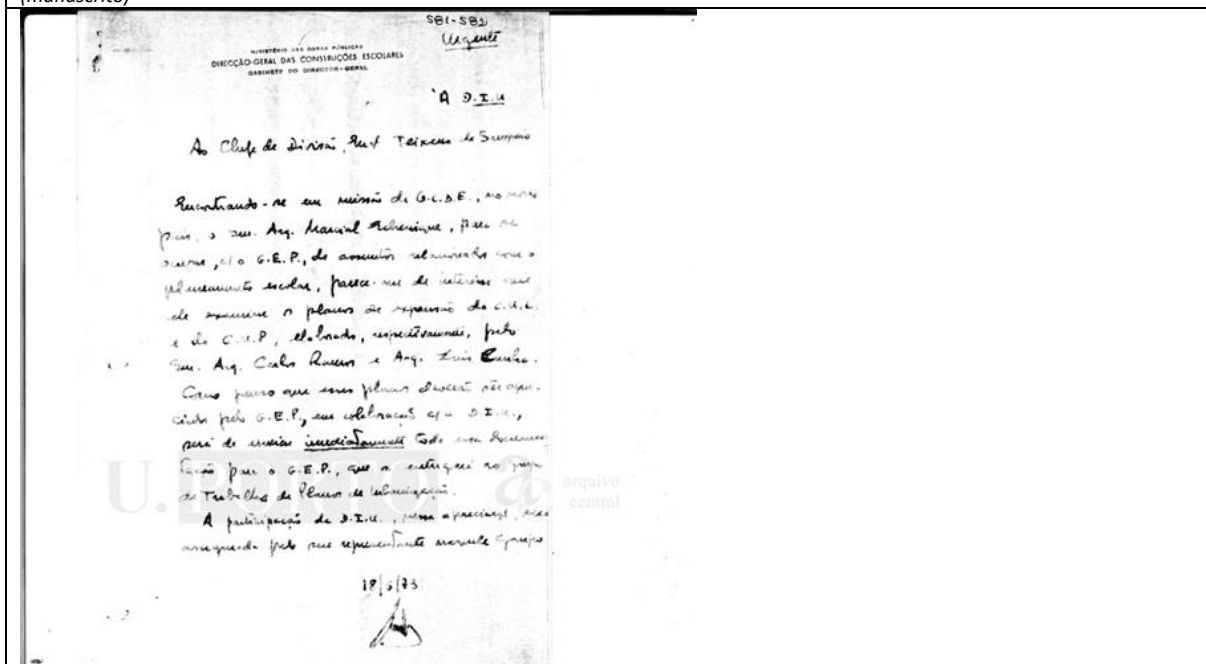 (manuscrito)
581-582
Urgente
MINISTÉRIO DAS OBRAS PÚBLICAS
DIRECÇÃO-GERAL DAS CONSTRUÇÕES ESCOLARES
GABINETE DO DIRECTOR-GERAL
À D.I.U
Ao Chefe de Divisão, Teixeira de
Encontrando-se em missão da O.C.D.E., no nosso
país, o Sen. Arq. Marcial Echenique, para se
ocupar, c/ o G.E.P., de assuntos relacionados com o
planeamento escolar, parece-me de interesse que
ele examine os planos de expansão da C.U.L.
e da C.U.P, elaborados, respectivamente, pelo
Sen. Arq. Carlos Ramos e Arq. Luis Cunha.
Como penso que esses planos deverão ser apre-
ciados pelo G.E.P., em colaboração c/ a D.I.U.,
será de enviar imediatamente toda essa documen
tação para o G.E.P., que a entregará ao grupo
de Trabalho de Planos de Urbanização.
A participação da D.I.U., nessa apreciação, será
assegurada pelo seu representante naquele grupo
18/5/73
U. PORTO
a
arquivo
central